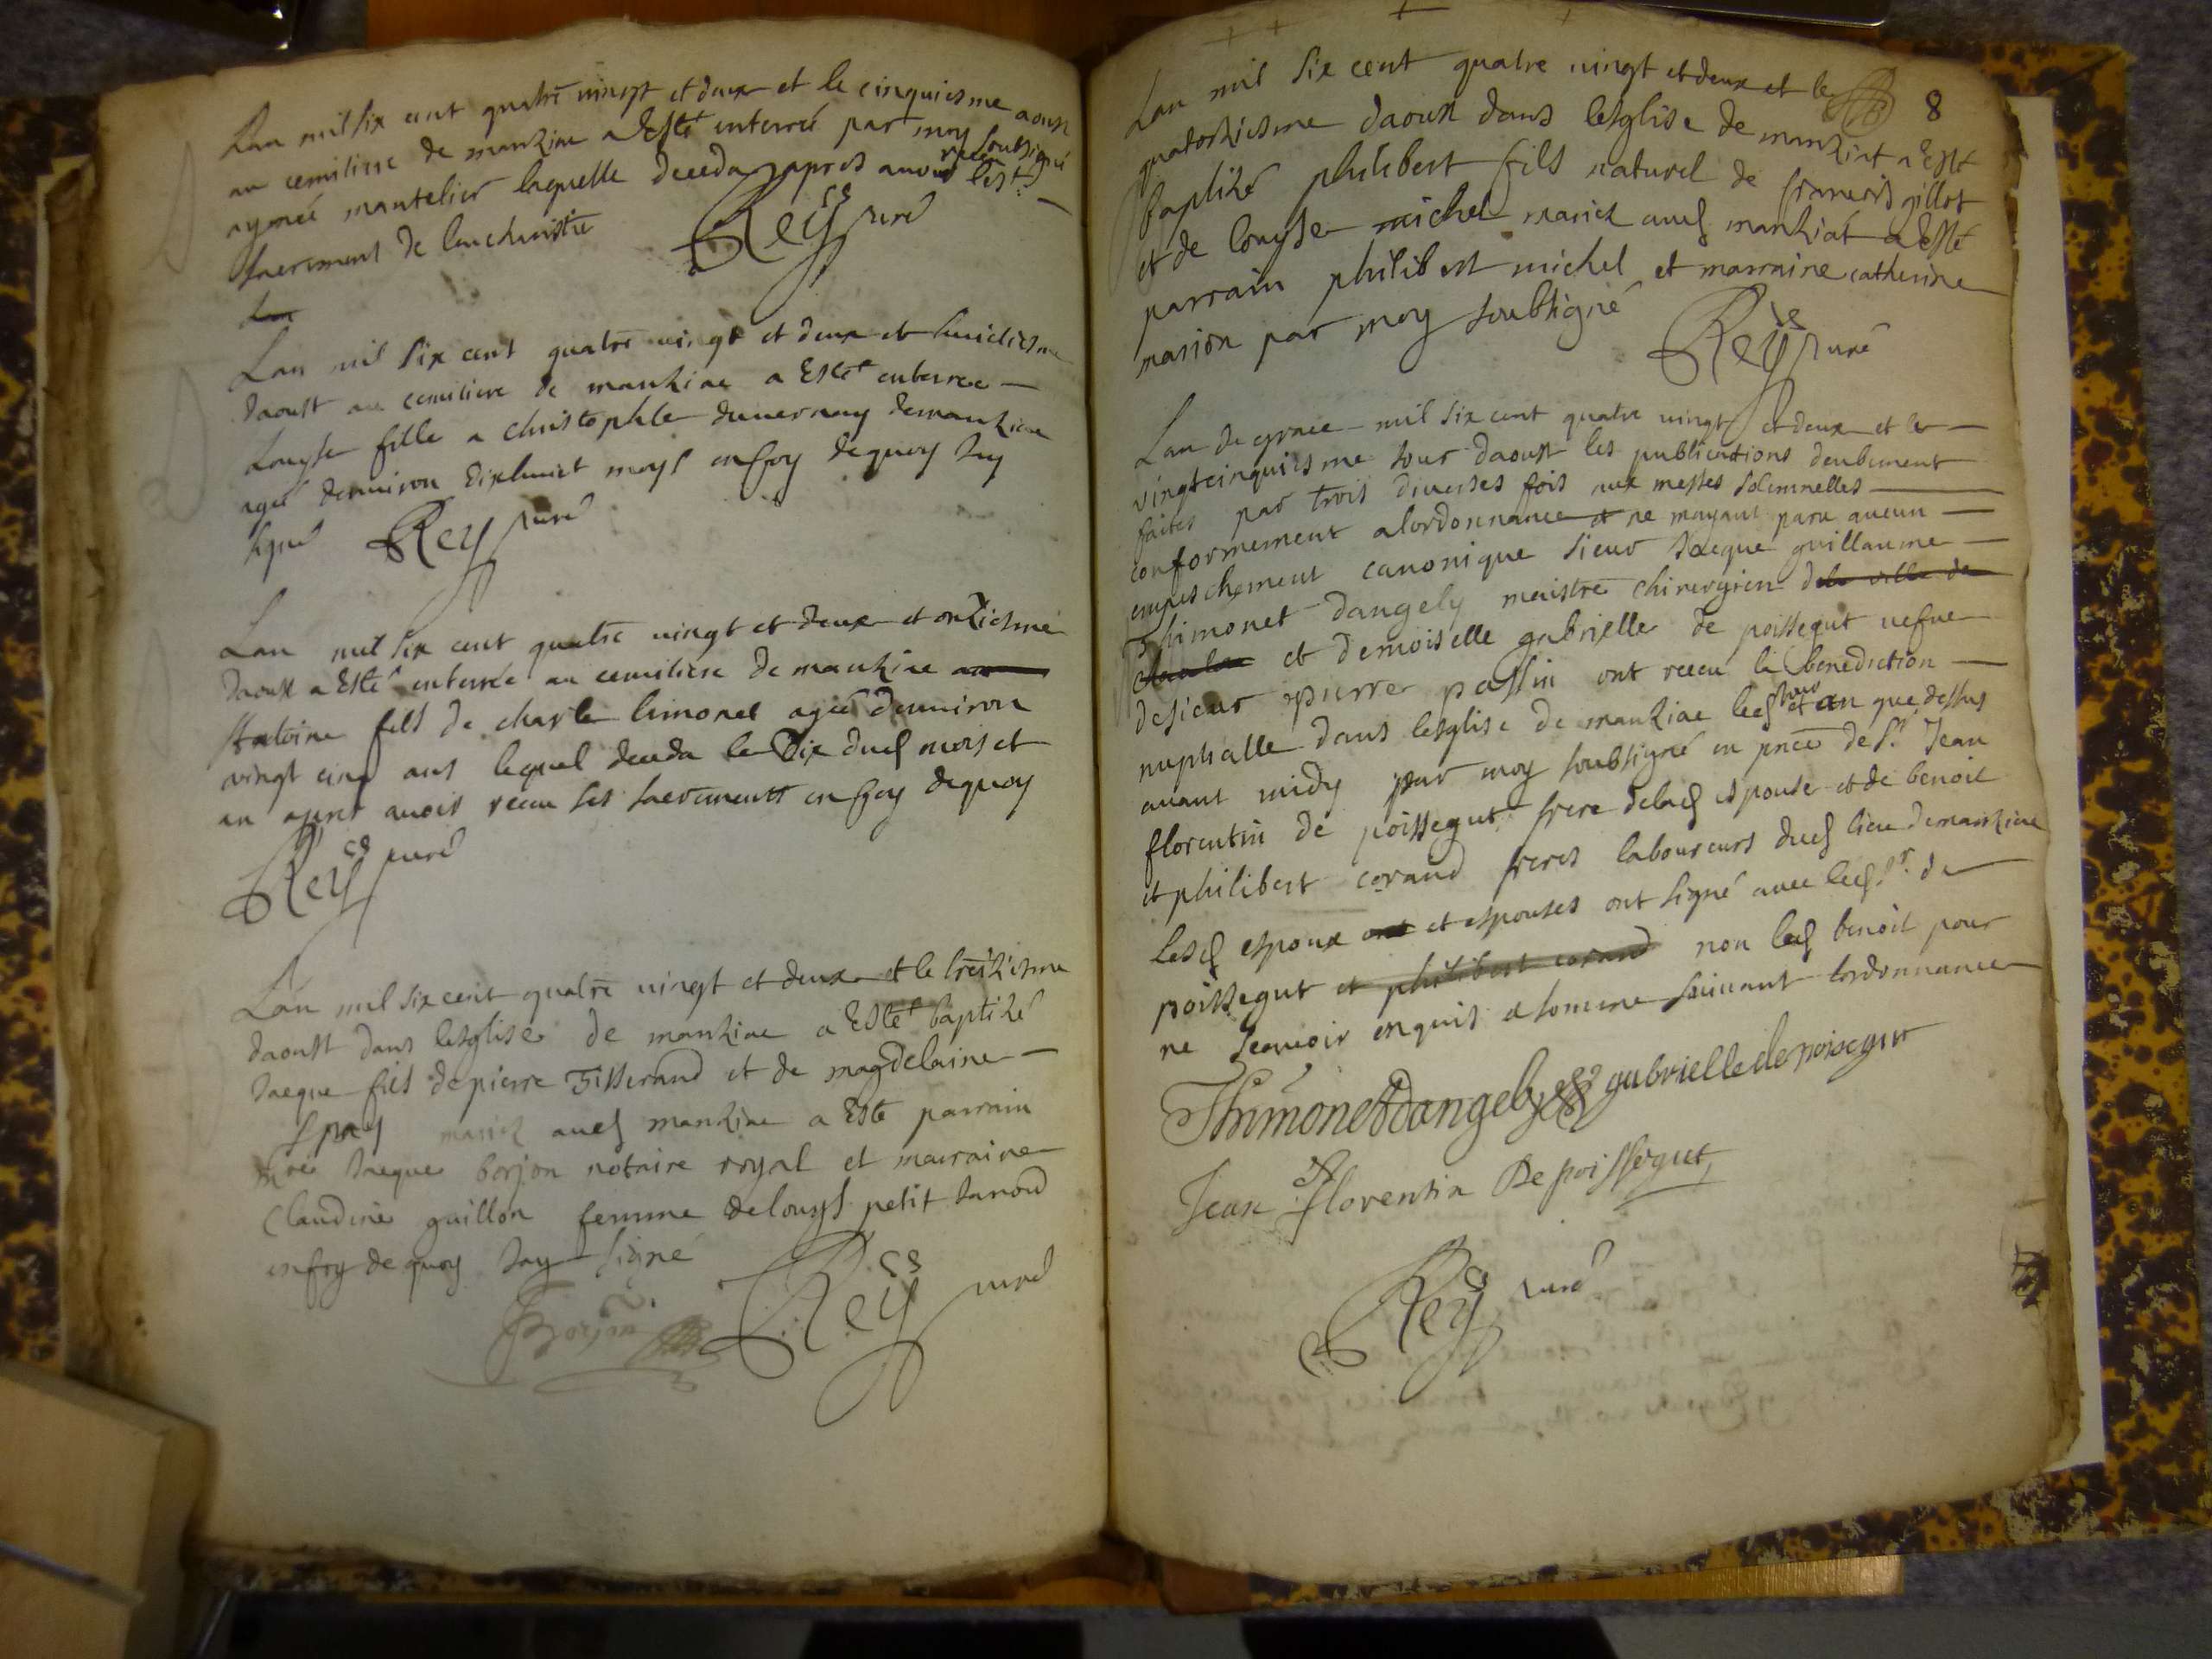 Lan mil six cent quatre vingt et deux et le cinquiesme aoust
au cemitiere de manziac a Esté enterrée par moy soubsigné
aymée mantelier laquelle deceda apres avoir receu le st
sacrement de leucharistie Rey curé
Lan
Lan mil six cent quatre vingt et deux et huictiesme
daoust au cemitiere de manziac a Esté enterree
Louyse fille a christophle duvernay de manziac
agée denviron dixhuict moys en foy dequoy jay
signé Rey curé
Lan mil six cent quatre vingt et deux et onziesme
daoust a Esté enterrée au cemitiere de manziac
Antoine fils de charle limonet agée denviron
vingt cinq ans lequel deceda le dix dud mois et
an apres avoir receu ses sacrements en foy dequoy
Rey curé
Lan mil six cent quatre vingt et deux et le treiziesme
daoust dans lesglise de manziac a Esté baptizé
Jacque fils de pierre Tisserand et de magdelaine
mariez aud manziac a Esté parrain
Mre Jacque borjon notaire royal et marraine
Claudine guillon femme de louys petit Janon
en foy de quoy Jay signé
Borjon Rey curé
8
Lan mil six cent quatre vingt et deux et le
quatorziesme daoust dans lesglise de manziat a Esté
baptizé philibert fils naturel de francois gillot
et de louyse michel mariez aud manziat a Esté
parrain philibert michel et marraine catherine
marion par moy soubsigné
Rey curé
Lan de grace mil six cent quatre vingt et deux et le
vingtcinquiesme jour daoust les publications deubement
faites par trois diverses fois aux messes solemnelles
conformement a lordonnance et ne mayant paru aucun
empeschement canonique sieur Jacque guillaume
Thimonet dangely maistre chirurgien de la ville de
et demoiselle gabrielle de poissegut vefve
de sieur pierre passin ont receu la benediction
nuptialle dans lesglise de manziac led jour et an que dessus
avant midy par moy soubsigné en pnce de sr Jean
florentin de poissegut frere de lad espouse et de benoit
et philibert corand freres laboureurs dud lieu de manziac
lesd espoux ont et espouses ont signé avec led sr de
poissegut et philibert corand non led benoit pour
ne scavoir enquis et sommé suivant lordonnance
Thimonet dangely gabrielle de poisegut
Jean florentin De poissegut
Rey curé